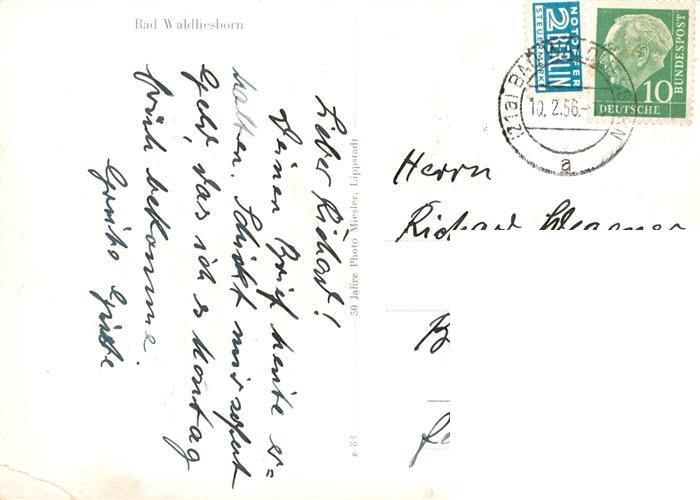 Bad Waldliesborn
Lieber Richard!
Deinen Brief heute er=
halten. Schickt mir sofort
Geld das ich s Montag
früh bekomme
Grüße
50 Jahre Photo Miesler, Lippstadt
e 83
NOTOPFER
2 BERLIN
STEUERMARKE
10
DEUTSCHE
BUNDESPOST
(21a) BAD
10. 2. 56.-
a
Herrn
Richard